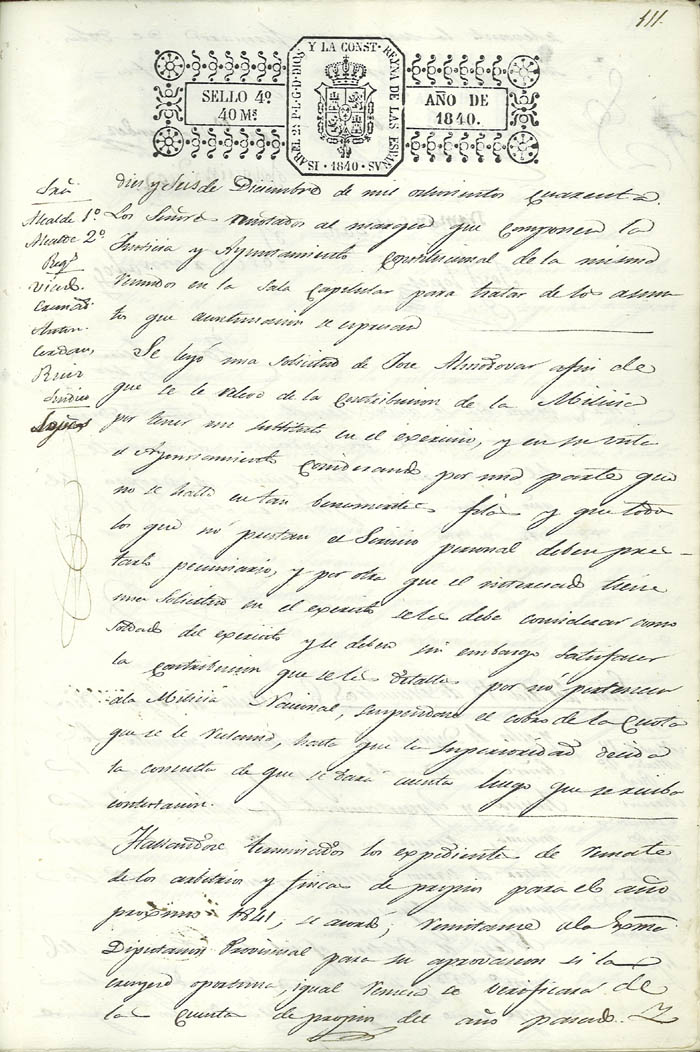 111.
Y LA CONST. REYNA DE LAS ESPAÑAS
ISABEL 2ª P.L.G.D DIOS
1840
SELLO 4º
40 Mˢ
AÑO DE
1840.
Alcalde 1º
Alcalde 2º
Ruiz
Sindico
Diez y Seis de Diciembre de mil ochocientos Cuarenta.
Los Señores anotados al margen que componen la
Justicia y Ayuntamiento Constitucional de la misma
reunidos en la Sala Capitular para tratar de los asun
tos que acontinuacion se expresan
Se leyó una Solicitud de Jose Almodovar afin de
que se le releve de la Contribucion de la Milicia
por tener un Substituto en el exercicio, y en su vista
el Ayuntamiento Considerando por una parte que
no se halla en tan benemerita fila y que todos
los que no prestan el Servicio personal deben pres-
tarlo pecuniario, y por otra que el interesado tiene
una Solicitud en el exercito se le debe considerar como
Soldado del exercito y se deben sin embargo Satisfacer
la Contribucion que se les detalla por no pertenecer
ala Milicia Nacional, suspendase el cobro de la Cuota
que se le reclama, hasta que la Superioridad decida
la consulta de que se dará cuenta luego que se reciba
contestacion.
Hallandose terminados los expedientes de remate
de los arbitrios y fincas de propios para el año
proximo 1841, se acordó, remitanse ala Exma
Diputacion Provincial para su aprovacion si la
creyere oportuna, igual remesa se verificara de
la Cuenta de propios del año pasado.